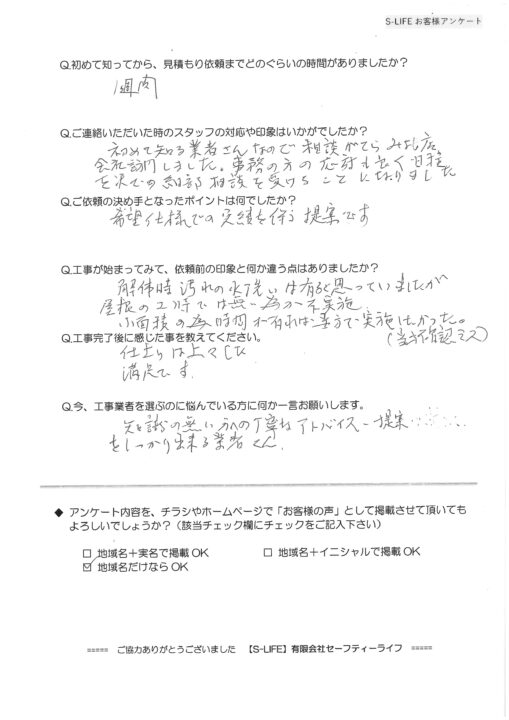 S-LIFE お客様アンケート
Q.初めて知ってから、見積もり依頼までどのぐらいの時間がありましたか？
1週間
Q.ご連絡いただいた時のスタッフの対応や印象はいかがでしたか？
初めて知る業者さんなので相談がてら みよし店
会社訪問しました。事務の方の応対も良く日程
を決での細部相談を受けることになりました
Q.ご依頼の決め手となったポイントは何でしたか？
希望仕様での実績を伴う提案です
Q.工事が始まってみて、依頼前の印象と何か違う点はありましたか？
解体時汚れの水洗いは有ると思っていましたが
屋根の工時では無い為か不実施
小面積の為時間が有れば実施したかった。
(当方確認ミス)
Q.工事完了後に感じた事を教えてください。
仕上りは上々で
満足です
Q.今、工事業者を選ぶのに悩んでいる方に何か一言お願いします。
知識の無い方への丁寧なアドバイス-提案
をしっかり出来る業者さん
◆ アンケート内容を、チラシやホームページで「お客様の声」として掲載させて頂いても
よろしいでしょうか？（該当チェック欄にチェックをご記入下さい）
□ 地域名＋実名で掲載OK □ 地域名＋イニシャルで掲載OK
☑ 地域名だけなら OK
===== ご協力ありがとうございました 【S-LIFE】有限会社セーフティーライフ =====